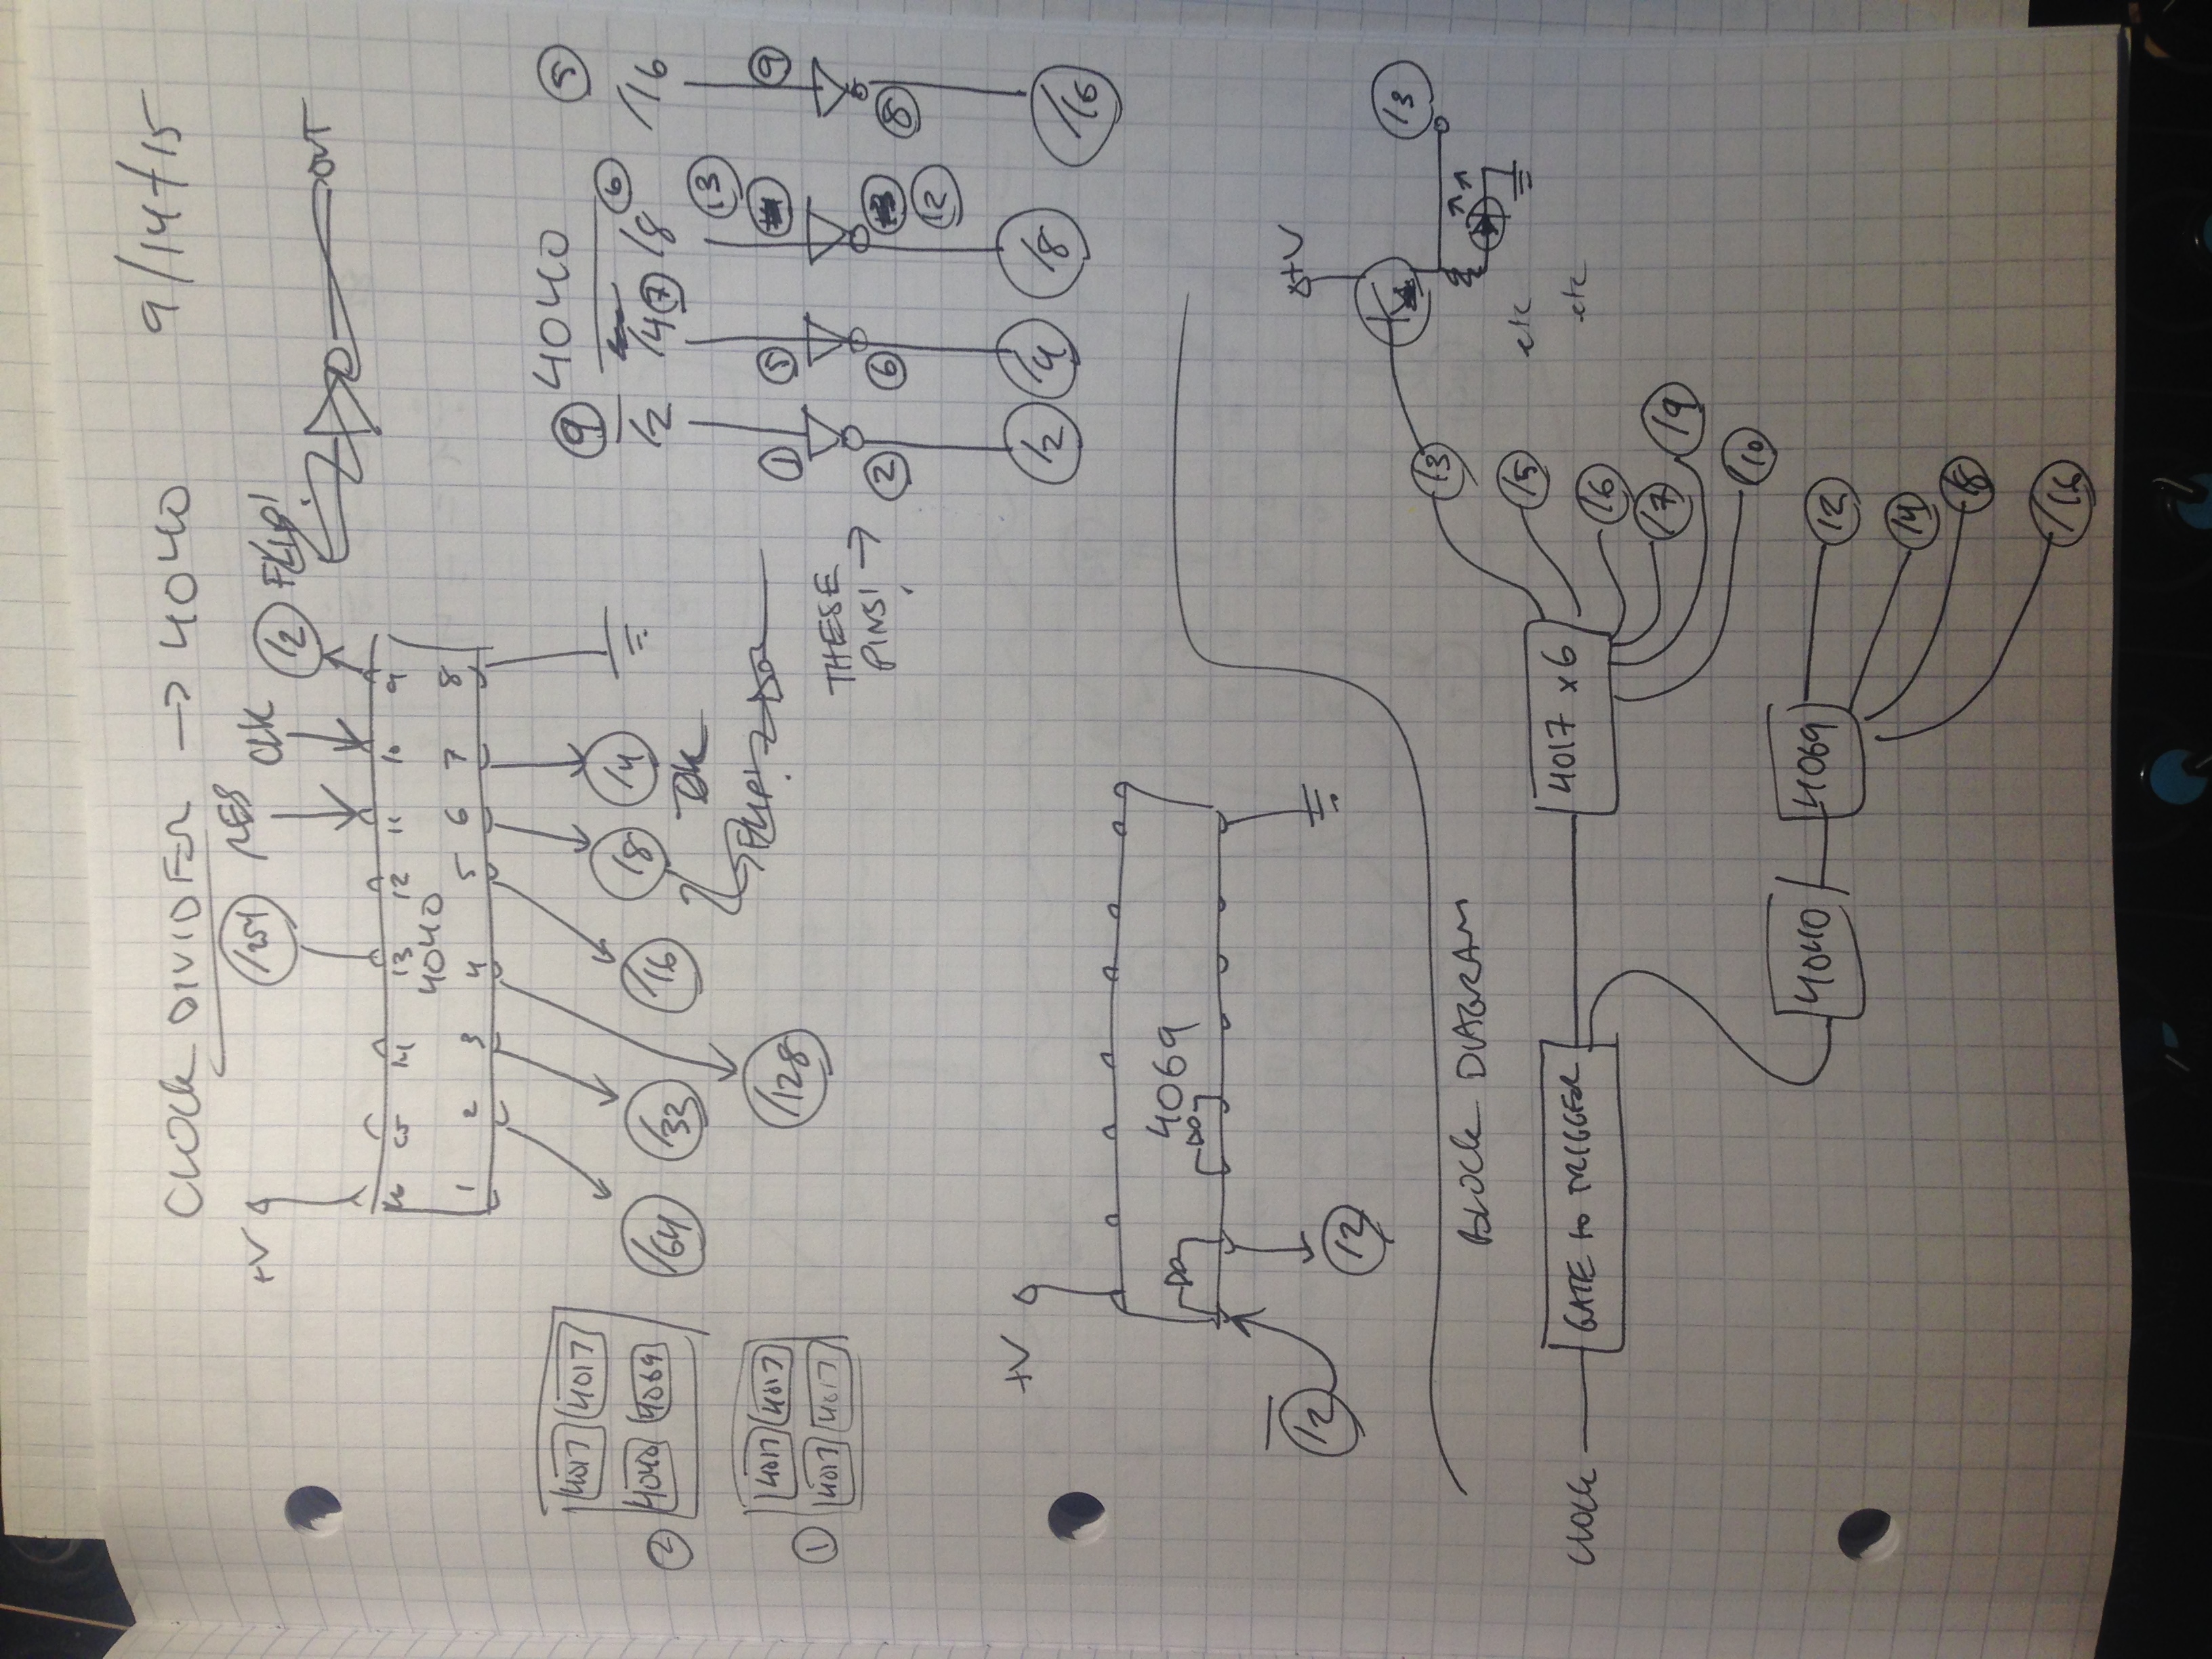 CLOCK DIVIDER → 4040
9/14/15
+V
/254
RES
CLK
/2
FLIP!
OUT
16 15 14 13 12 11 10 9
4040
1 2 3 4 5 6 7 8
/64 /33 /128 /16 /8 /4
OK
FLIP!
4017 4017
4040 4069
2
4017 4017
4017 4017
1
4040
9 7 6 5
/2 /4 /8 /16
13
1 5 9
THESE
PINS! →
2 6 8
12
/2 /4 /8 /16
+V
4069
/2
/2
BLOCK DIAGRAM
+V
/3
/3
CLOCK
GATE to TRIGGER
4017 x6
/5
etc
/6
etc
/7
/9
/10
4040
4069
/2
/4
/8
/16